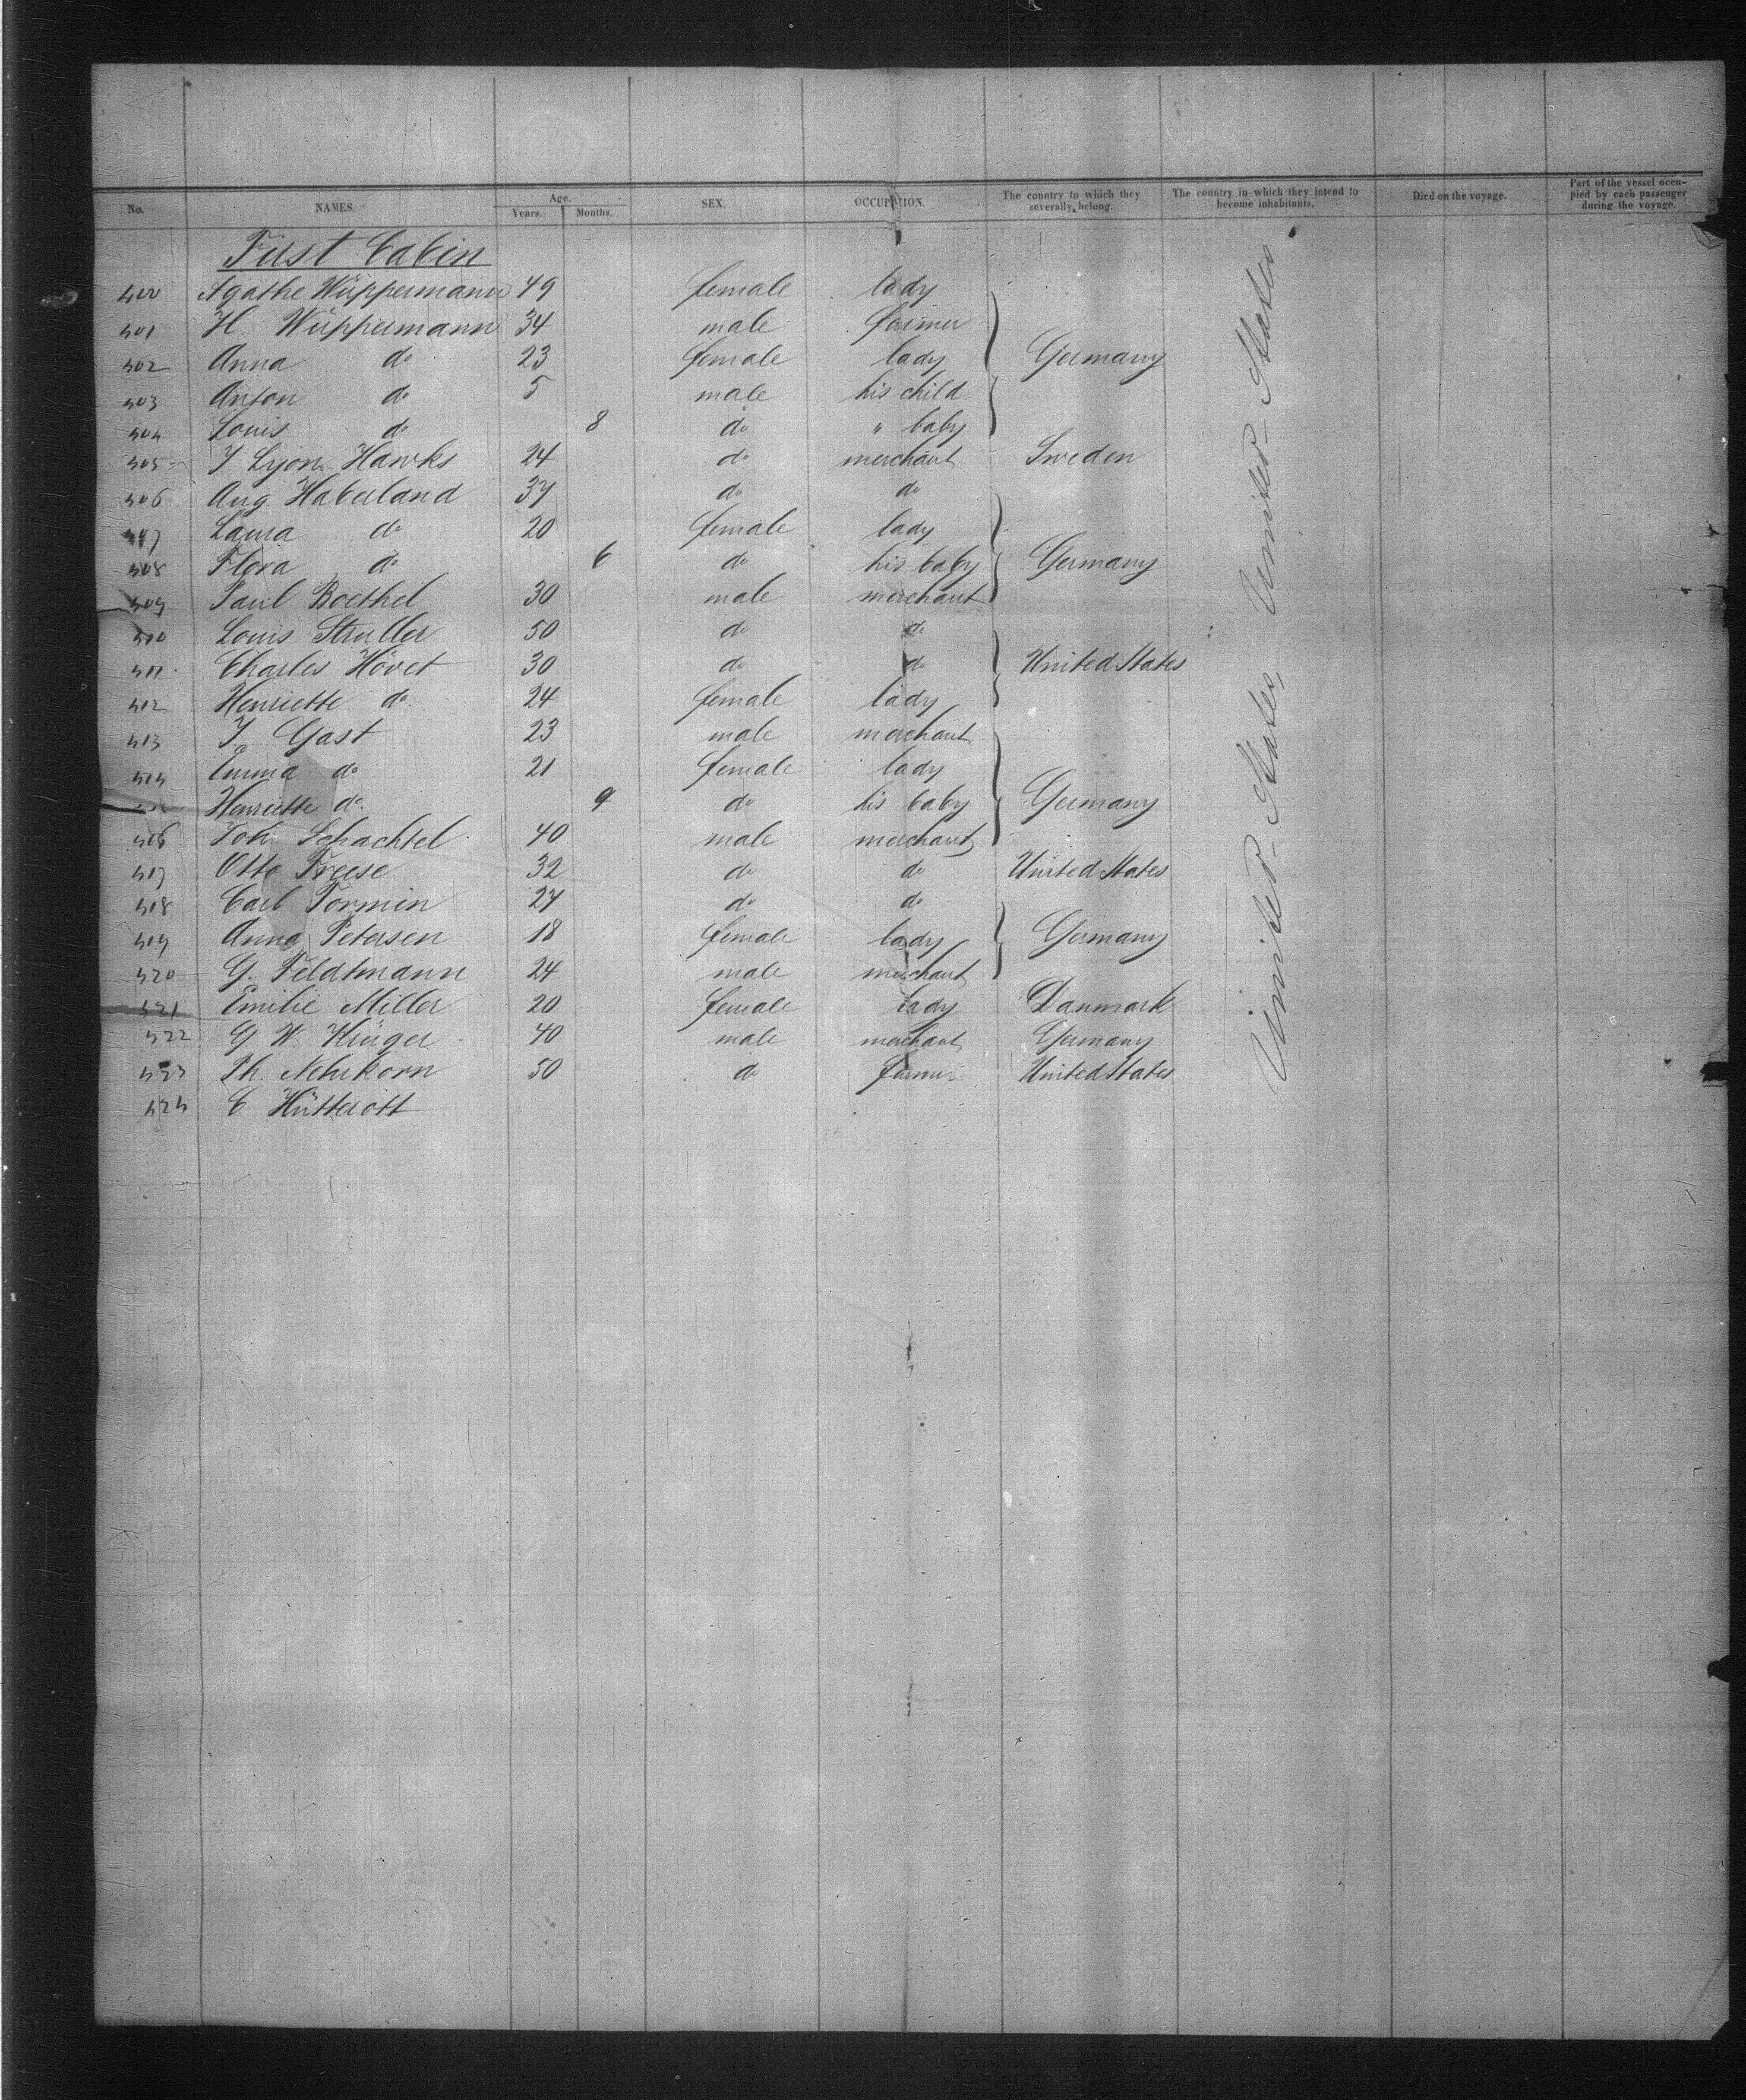 No. NAMES. Age. Years. Months. SEX. OCCUPATION. The country to which they severally belong. The country in which they intend to become inhabitants. Died on the voyage. Part of the vessel occupied by each passenger during the voyage.
First Cabin
400 Agathe Wüppermann 49 female lady
401 H. Wüppermann 34 male farmer
402 Anna do 23 female lady Germany
403 Anton do 5 male his child
404 Louis do 8 do " baby
405 J Lyon Hawks 24 do merchant Sweden
406 Aug. Haberland 37 do do
407 Laura do 20 female lady
408 Flora do 6 do his baby Germany
409 Paul Boethel 30 male merchant
410 Louis Struller 50 do do
411 Charles Hövet 30 do do United States
412 Henriette do 24 female lady
413 J. Gast 23 male merchant
414 Emma do 21 female lady
Henriette do 9 do his baby Germany
416 Joh. Schachtel 40 male merchant
417 Otto Freese 32 do do United States
418 Carl Tormin 27 do do
419 Anna Petersen 18 female lady Germany
420 G. Feldtmann 24 male merchant
421 Emilie Miller 20 female lady Danmark
422 G. W. Krüger 40 male merchant Germany
423 Ph. Nehrkorn 50 do farmer United States
424 C Hütterott
United States, United States